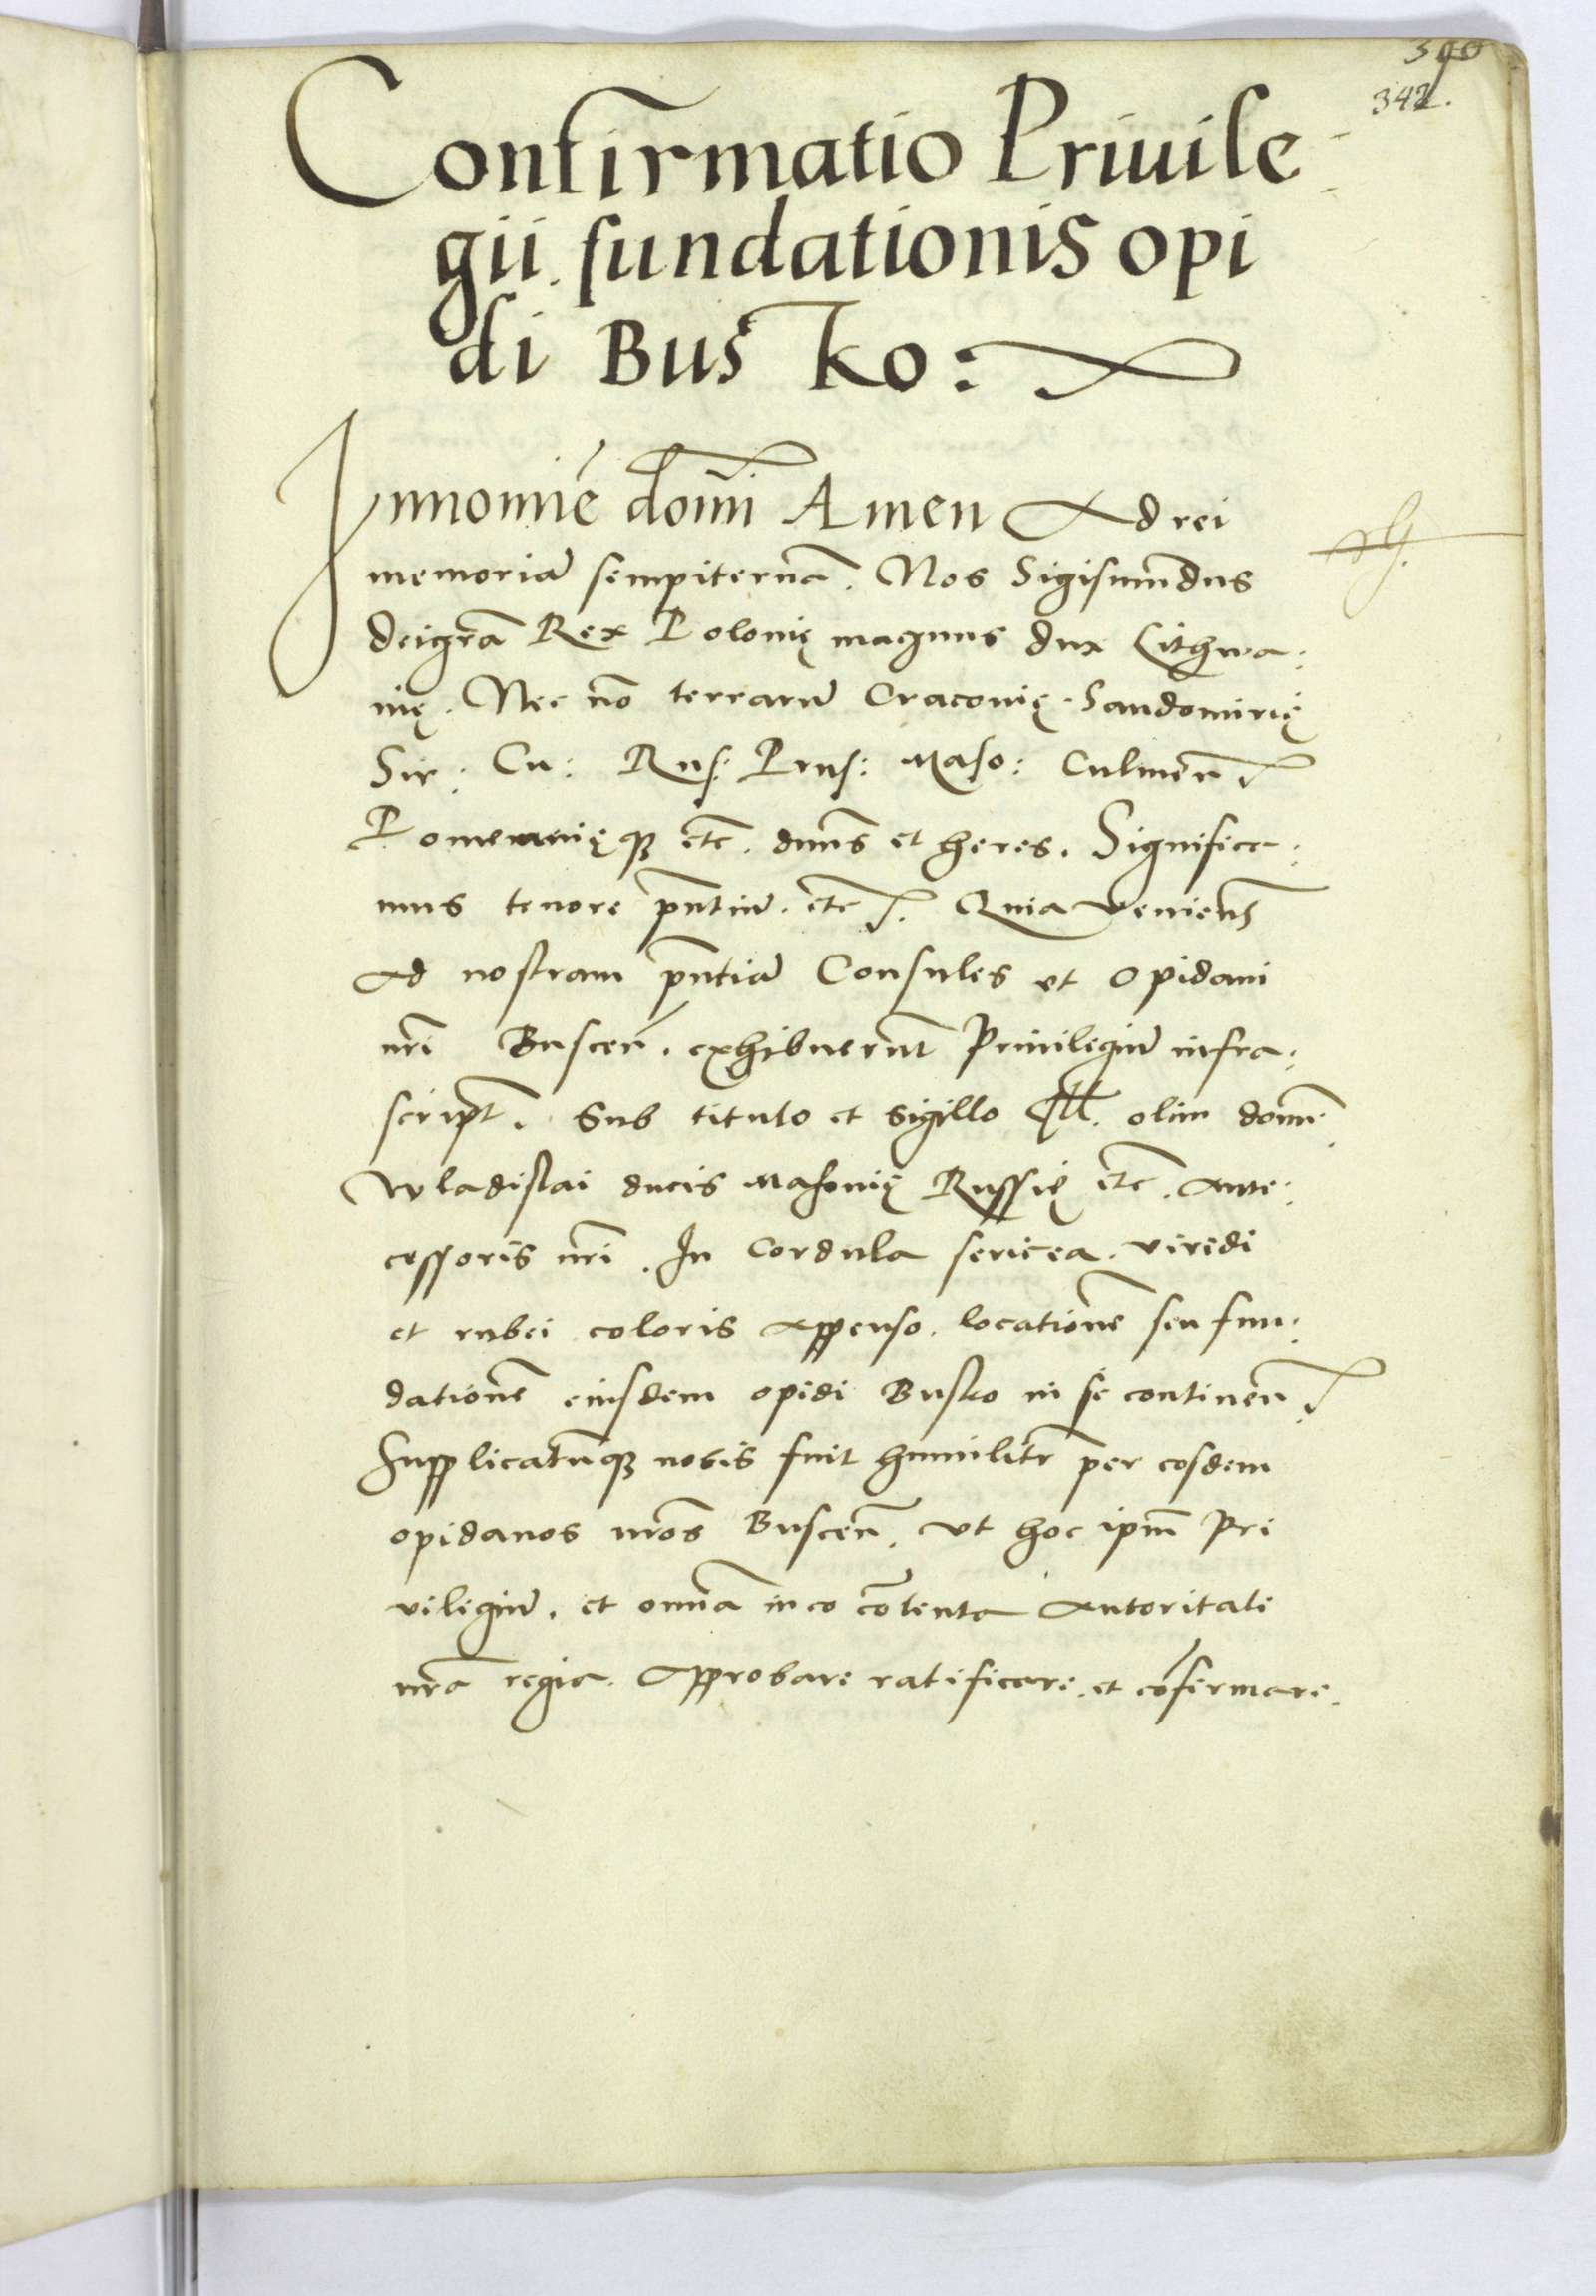 342.
Confirmatio Priuile
gii fundationis opi
di Busko:
In nomiē domī Amen Ad rei
memoriā sempiternā. Nos Sigismūdus
dei grā Rex Polonię magnus dux Lithwa:
nię. Nec nō terrarū Cracovię. Sandomirię
Sir: Cu: Rus: Prus: Maso: Culmeñ
Pomeranięqꝫ etc. dūns et heres. Significa:
mus tenore pñtiū. etc. Quia venieñs
Ad nostram pñtiā Consules et opidani
nr̄i Busceñ. exhibuerūt Priuilegiū infra:
script̄. Sub titulo et sigillo Ill. olim domī
Wladislai ducis Masouię Russię etc. Ante:
cessoris nr̄i. In Cordula sericea. viridi
et rubei coloris appenso. locationē seu fun:
dationē eiusdem opidi Busko in se contineñ
Supplicatūqꝫ nobis fuit humilitr̄ per eosdem
opidanos nr̄os Busceñ. Vt hoc ipm̄ Pri
vilegiū. et omnia in eo cōtenta Autoritate
nr̄a regia. Approbare ratificare. et cōfirmare.